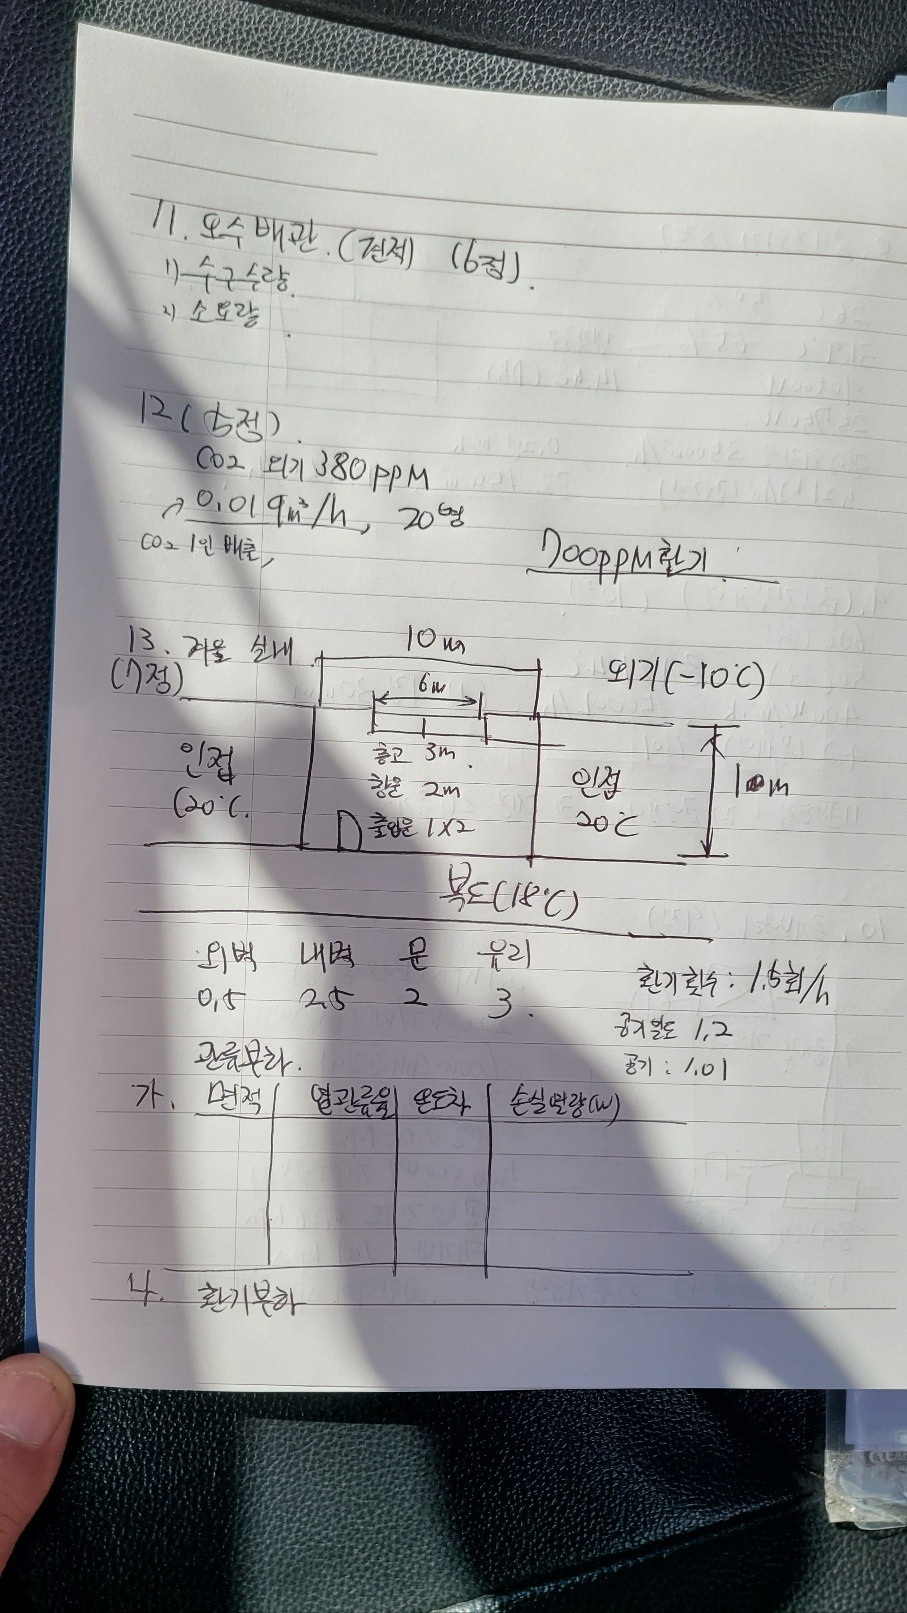 11.오수배관. (견적) (6점).
1) 수구수량.
2) 소요량
12 (5점).
CO2 외기 380ppM
0.019m³/h, 20명
CO2 1인 배출,
700ppM 환기
13. 겨울 실내
(7점)
10m
6m
외기(-10℃)
인접
(20℃.
층고 3m.
창문 2m
출입문 1X2
인접
20℃
10m
복도(18℃)
외벽 내벽 문 유리
0,5 2.5 2 3.
환기횟수 : 1.5회/h
공기밀도 1.2
공기 : 1.01
관류부하.
가. 면적 열관류율 온도차 손실열량(W)
나. 환기부하